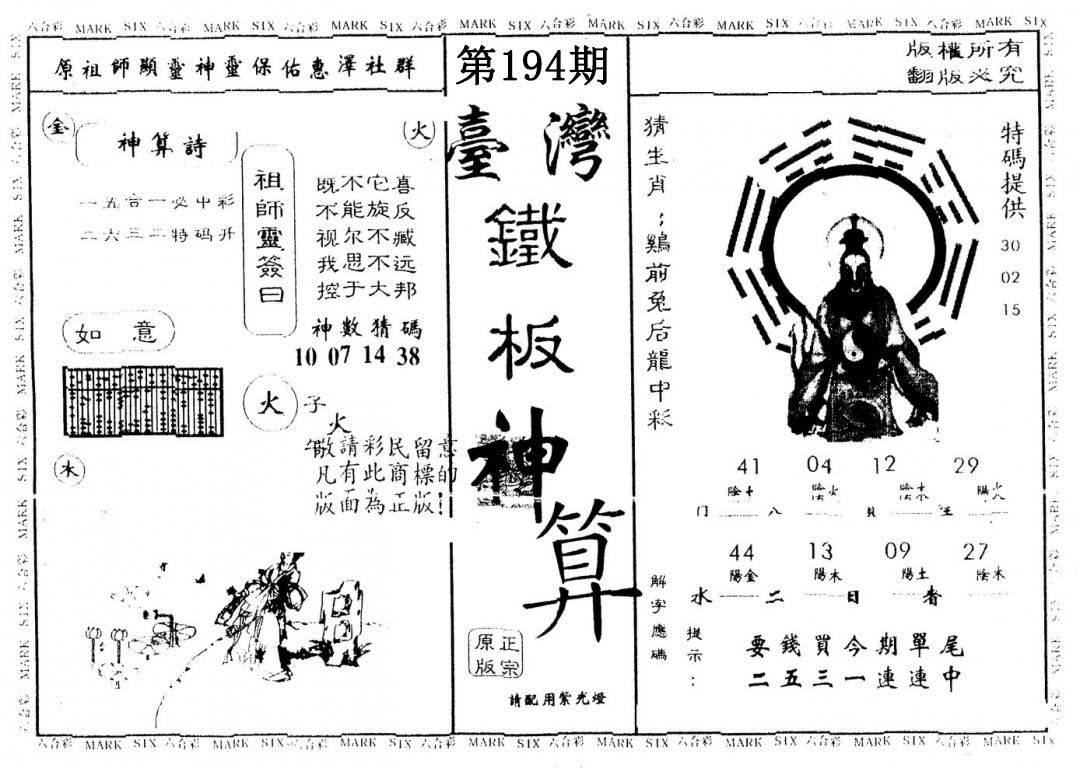 六合彩 MARK SIX 六合彩 MARK SIX 六合彩 MARK SIX 六合彩 MARK SIX 六合彩 MARK SIX 六合彩 MARK SIX 六合彩 MARK SIX 六合彩 MARK SIX
原祖師顯靈神靈保佑惠澤社群
第194期
版權所有
翻版必究
金
神算詩
火
一五合一必中彩
二六三二特码开
祖師靈簽曰
既不它喜
不能旋反
视尔不臧
我思不远
控于大邦
神數猜碼
10 07 14 38
如意
火
子
火
午敬請彩民留意
凡有此商標的
版面為正版!
水
臺灣
鐵
板
神
算
正宗
原版
請配用紫光燈
猜生肖:鷄前兔后龍中彩
特碼提供
30
02
15
41 04 12 29
陰土 陰火 陰木 陽火
门 八 貝 王
44 13 09 27
陽金 陽木 陽土 陰木
水 二 日 者
解字應碼
提示:
要錢買今期單尾
二五三一連連中
六合彩 MARK SIX 六合彩 MARK SIX 六合彩 MARK SIX 六合彩 MARK SIX 六合彩 MARK SIX 六合彩 MARK SIX 六合彩 MARK SIX 六合彩 MARK SIX